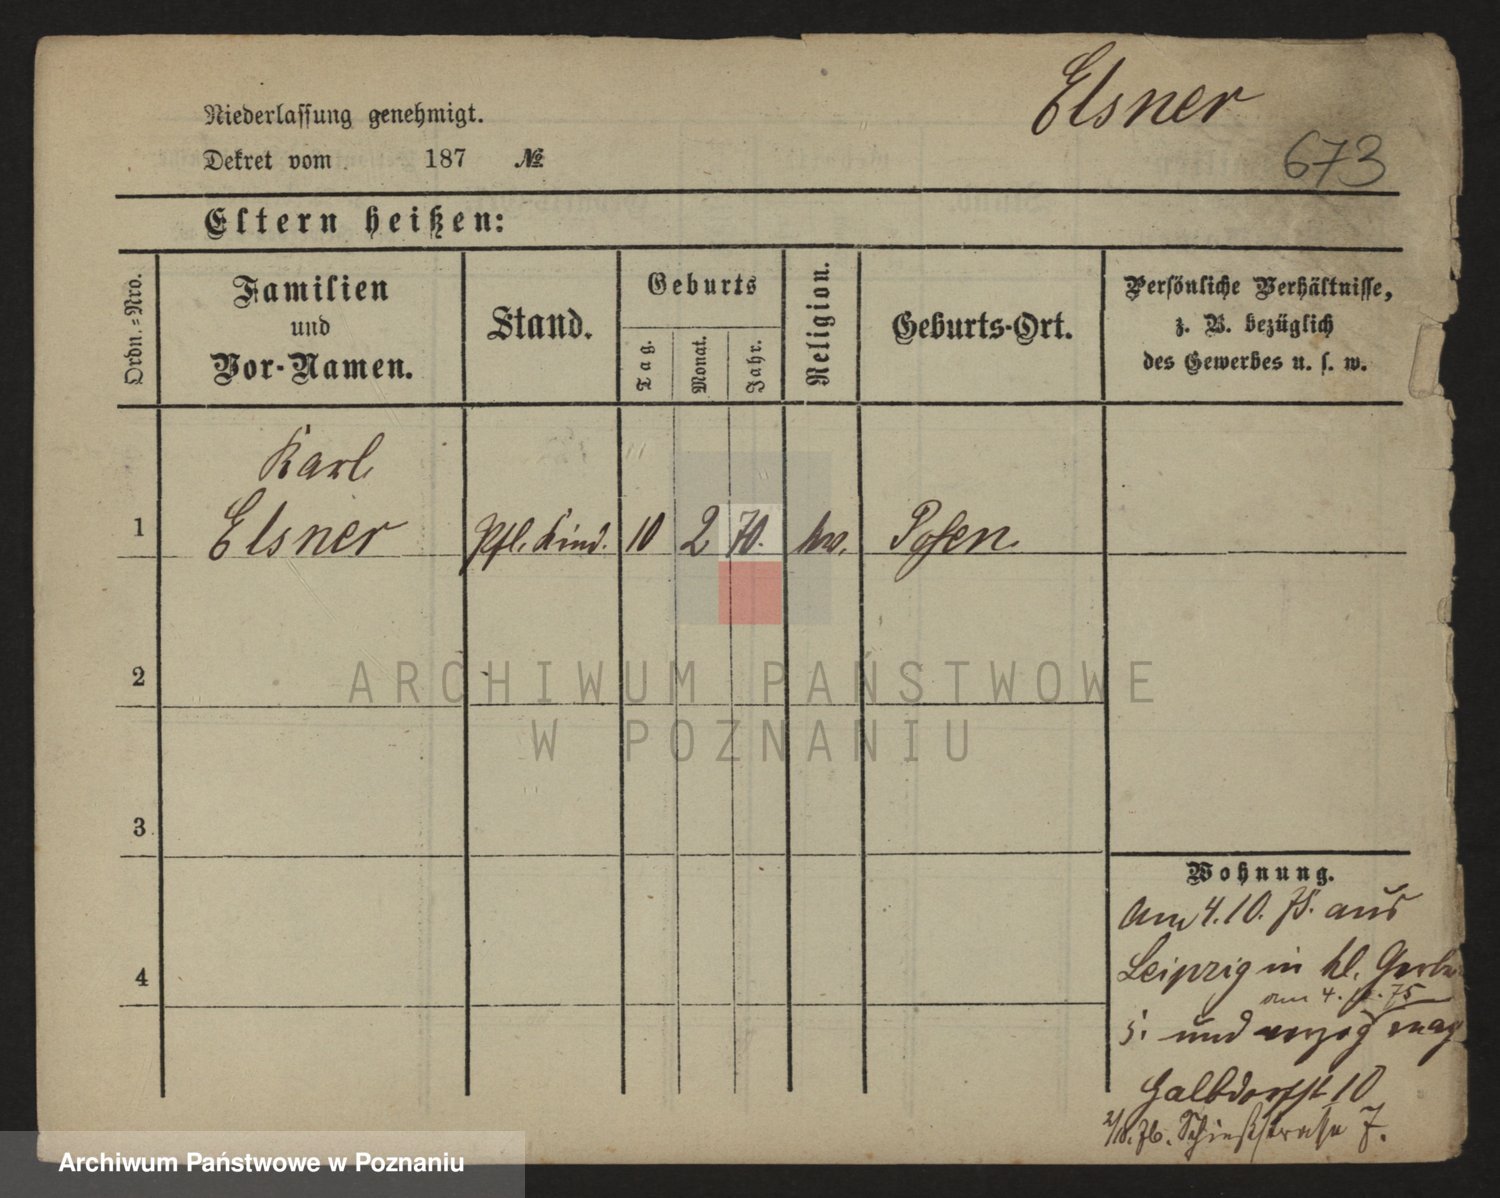 Elsner
673
Niederlassung genehmigt.
Dekret vom 187 №
Eltern heißen:
Ordn.-Nro.
Familien
und
Vor-Namen.
Stand.
Geburts
Tag.
Monat.
Jahr.
Religion.
Geburts-Ort.
Persönliche Verhältnisse,
z. B. bezüglich
des Gewerbes u. s. w.
Karl
1 Elsner Pfl. Kind. 10 2 70. Posen
2
3
4
Wohnung.
am 4. 10. 75. aus
Leipzig in kl. Gerber
am 4. 75
5. und verzog nach
Halbdorfst 10
Schießstraße 7.
ARCHIWUM PAŃSTWOWE
W POZNANIU
Archiwum Państwowe w Poznaniu